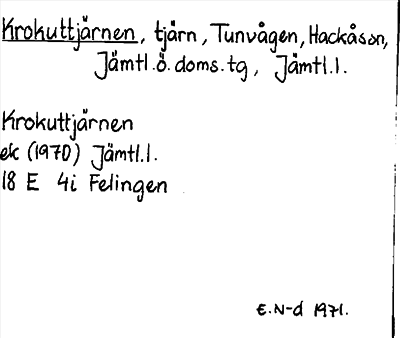 Krokuttjärnen, tjärn, Tunvågen, Hackåssn,
Jämtl.ö.doms.tg, Jämtl.l.
Krokuttjärnen
ek (1970) Jämtl.l.
18 E 4i Felingen
E.N-d 1971.